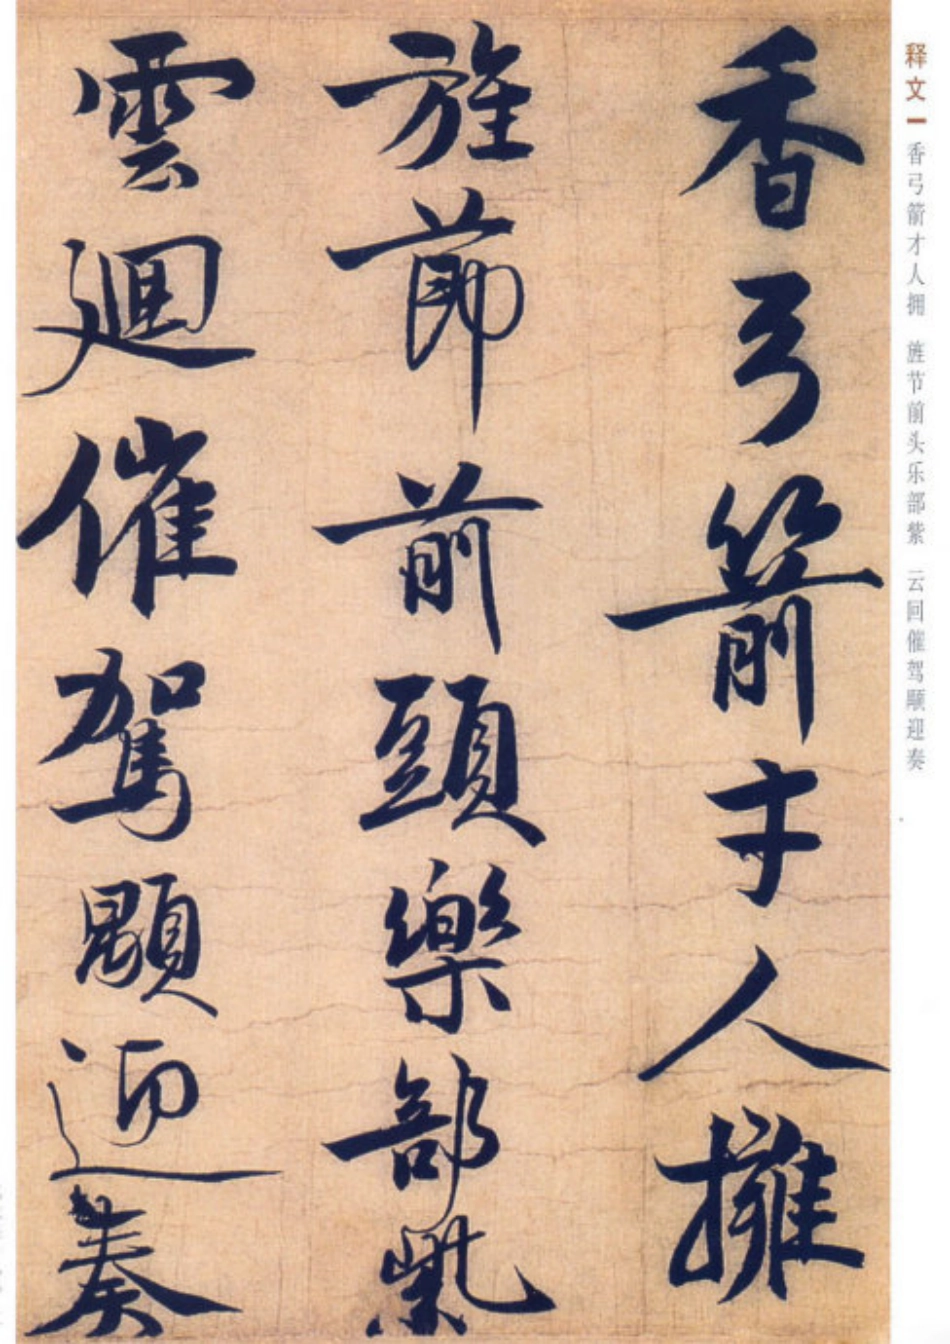 香弓箭才人擁
旌節前頭樂部紫
雲迴催駕顒迎奏
释文一 香弓箭才人拥 旌节前头乐部紫 云回催驾颙迎奏